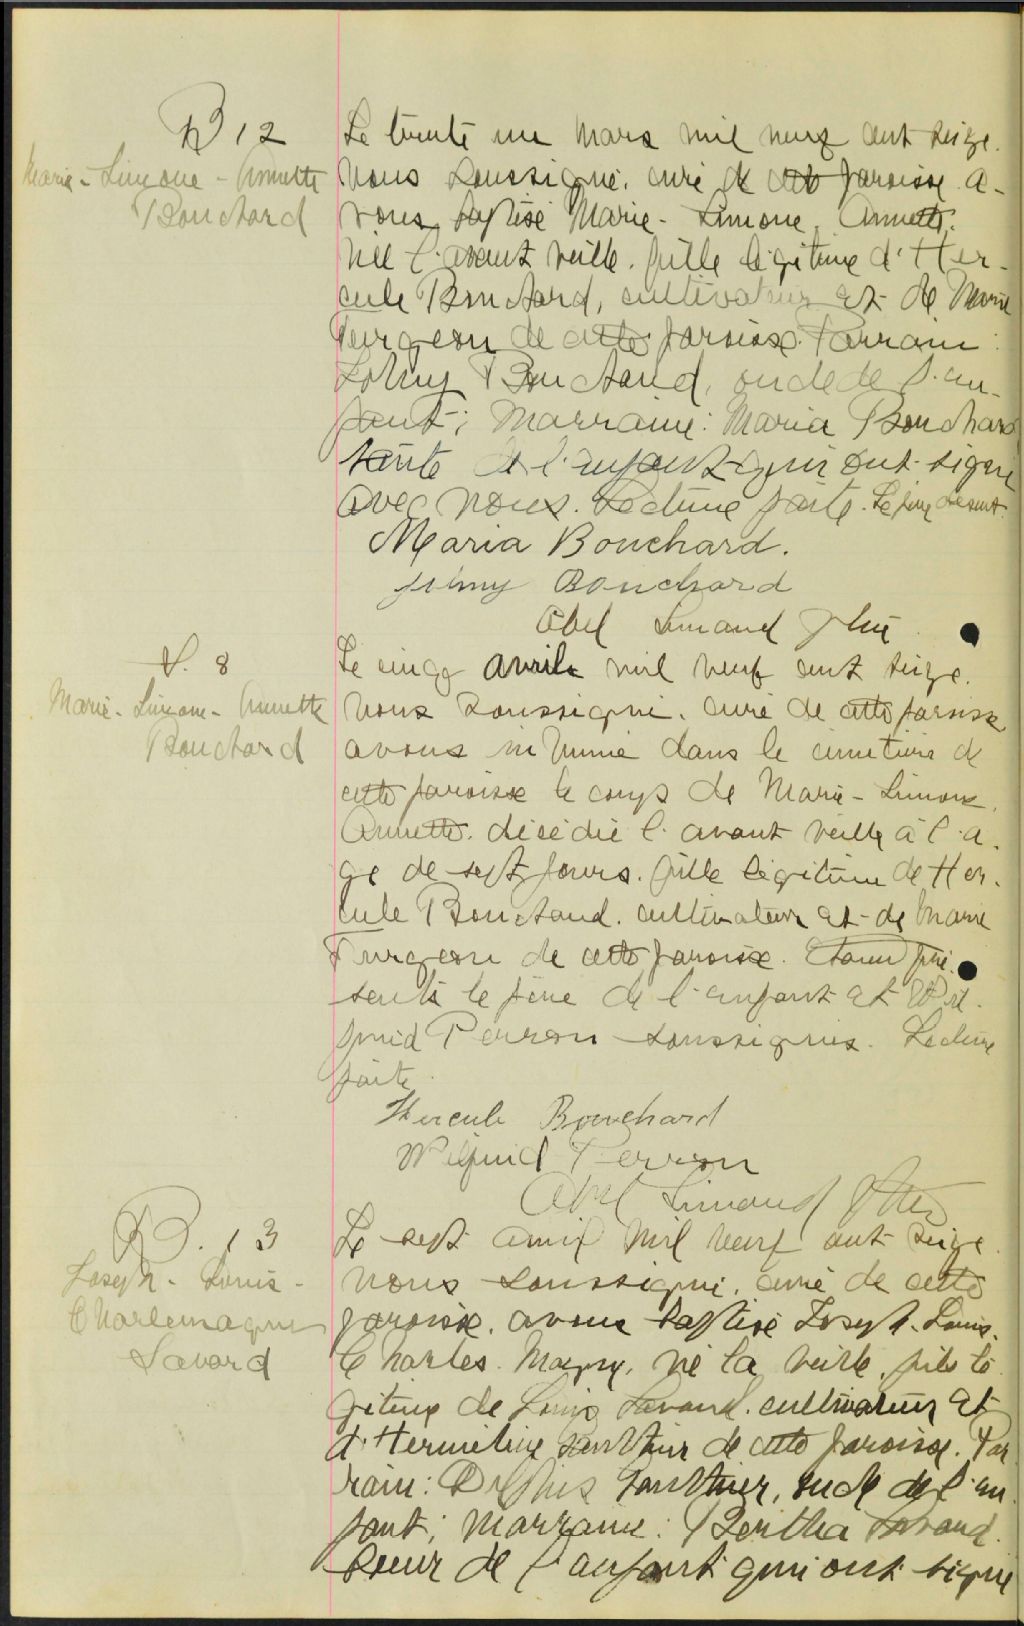 B 12
Marie-Simone-Annette
Bouchard
Le trente un mars mil neuf cent seize.
Nous soussigné, curé de cette paroisse a-
vons baptisé Marie-Simone, Annette.
née l'avant veille, fille légitime d'Her-
cule Bouchard, cultivateur et de Marie
Turgeon de cette paroisse. Parrain:
Johny Bouchard, oncle de l'en-
fant; Marraine: Maria Bouchard
tante de l'enfant qui ont signé
avec nous. Lecture faite. Le père absent.
Maria Bouchard.
Johny Bouchard
Abel Simard Ptre
S. 8
Marie-Simone-Annette
Bouchard
Le cinq avril mil neuf cent seize.
Nous soussigné, curé de cette paroisse
avons inhumé dans le cimetière de
cette paroisse le corps de Marie-Simone,
Annette. décédée l'avant veille à l'a-
ge de sept jours. fille légitime de Her-
cule Bouchard. cultivateur et de Marie
Turgeon de cette paroisse. Etaient pré-
sents le père de l'enfant et Wil-
frid Perron soussignés. Lecture
faite.
Hercule Bouchard
Wilfrid Perron
Abel Simard Ptre
B. 13
Joseph-Louis-
Charlemagne
Savard
Le sept avril mil neuf cent seize
nous soussigné, curé de cette
paroisse, avons baptisé Joseph-Louis-
Charles-Magne, né la veille, fils lé-
gitime de Louis Savard. cultivateur et
d'Herméline Gauthier de cette paroisse. Par-
rain: Delphis Gauthier, oncle de l'en-
fant; Marraine: Bertha Savard.
soeur de l'enfant qui ont signé